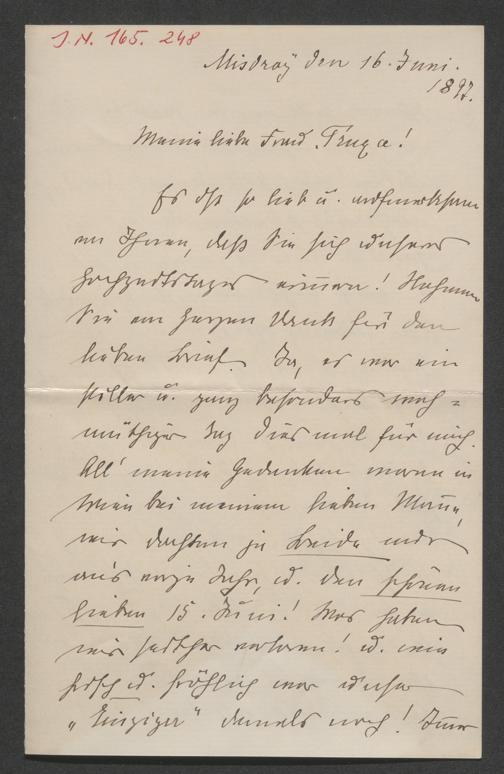 J.N. 165. 248
Misdroÿ den 16. Juni.
1897.
Meine liebe Frau Truxa!
Es ist so lieb u. aufmerksam
von Ihnen, daß Sie sich unseres
Hochzeitstages erinnern! Nehmen
Sie von Herzen Dank für den
lieben Brief. Ja, es war ein
stiller u. ganz besonders weh=
müthiger Tag diesmal für mich.
All' meine Gedanken waren in
Wien bei meinem lieben Mann,
wir dachten ja Beide nur
an's vorige Jahr, u. den schönen
lieben 15. Juni! Was haben
wir seither verloren! u. wie
frisch u. fröhlich war unser
„Einziger" damals noch!